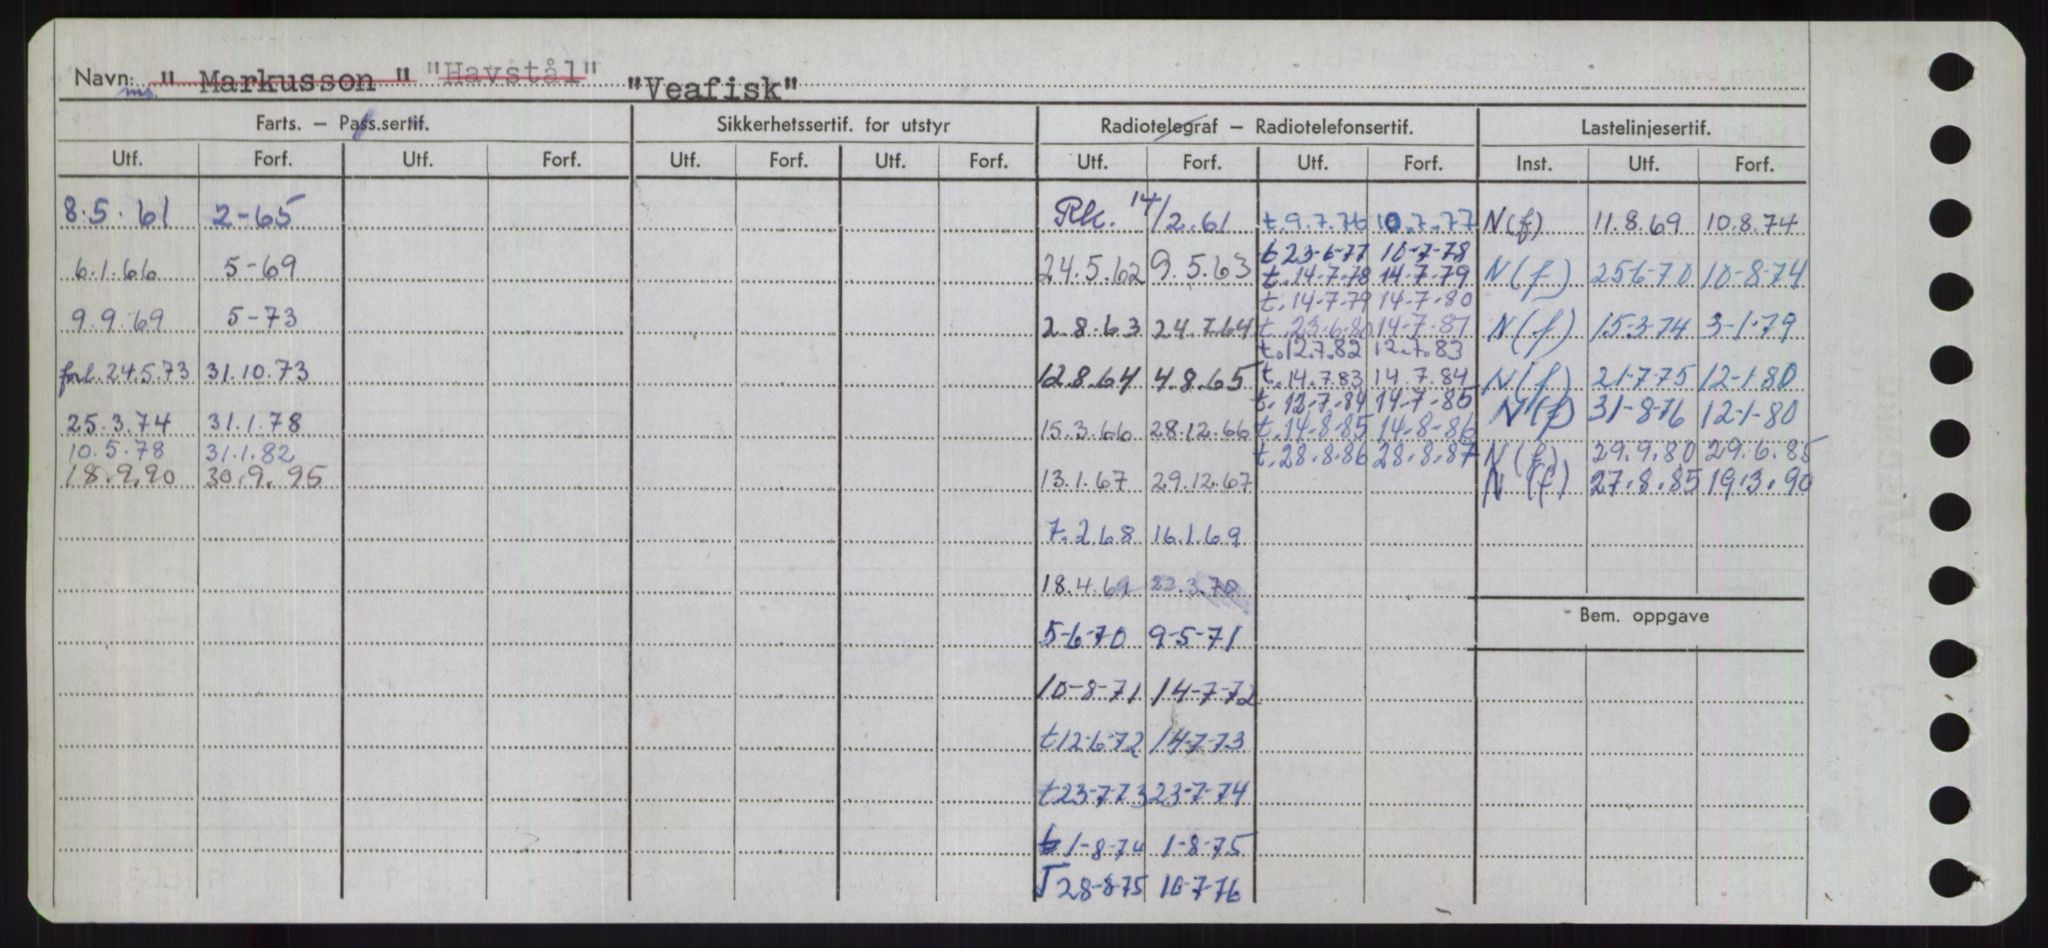 Navn: " Markusson " "Havstål" "Veafisk"
ms.
Farts. — Pass.sertif. Sikkerhetssertif. for utstyr Radiotelegraf — Radiotelefonsertif. Lastelinjesertif.
Utf. Forf. Utf. Forf. Utf. Forf. Utf. Forf. Utf. Forf. Utf. Forf. Inst. Utf. Forf.
8.5.61 2-65 Rk. 14/2.61 t.9.7.76 10.7.77 N(f) 11.8.69 10.8.74
t 23-6-77 10-7-78
6.1.66 5-69 24.5.62 9.5.63 t.14-7-78 14-7-79 N(f) 25-6-70 10-8-74
t.14-7-79 14-7-80
9.9.69 5-73 2.8.63 24.7.64 t.23.6.80 14-7-81 N(f) 15-3-74 3-1-79
t.12.7.82 12.7.83
forl. 24.5.73 31.10.73 12.8.64 4.8.65 t.14.7.83 14.7.84 N(f) 21-7-75 12-1-80
t.12-7-84 14-7-85 N(f) 31-8-76 12-1-80
25.3.74 31.1.78 15.3.66 28.12.66 t.14-8-85 14-8-86
10.5.78 31.1.82 t.28-8-86 28-8-87 N(f) 29.9.80 29.6.85
18.9.90 30.9.95 13.1.67 29.12.67 N(f) 27.8.85 19.3.90
7.2.68 16.1.69
18.4.69 22.3.70
5-6-70 9-5-71
Bem. oppgave
10-8-71 14-7-72
t12-6-72 14-7-73
t23-7-73 23-7-74
t 1-8-74 1-8-75
T 28-8-75 10-7-76